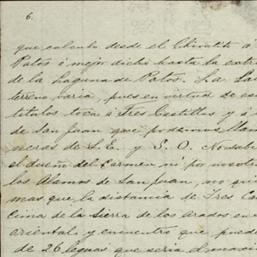 6.
que calculo desde el Chivatito á
Patos ó mejor dicho hasta la
de la Laguna de Patos. La
terreno varia, pues en virtud de
titulos toca á Tres Castillos y á
de San Juan que podamos
neras de S. E. y S. O.
el dueño del Carmen ni por
los Alamos de San Juan, no
mas que la distancia de Tres
Cima de la Sierra de los Arados en
oriental y encuentro que
de 26 leguas que seria el